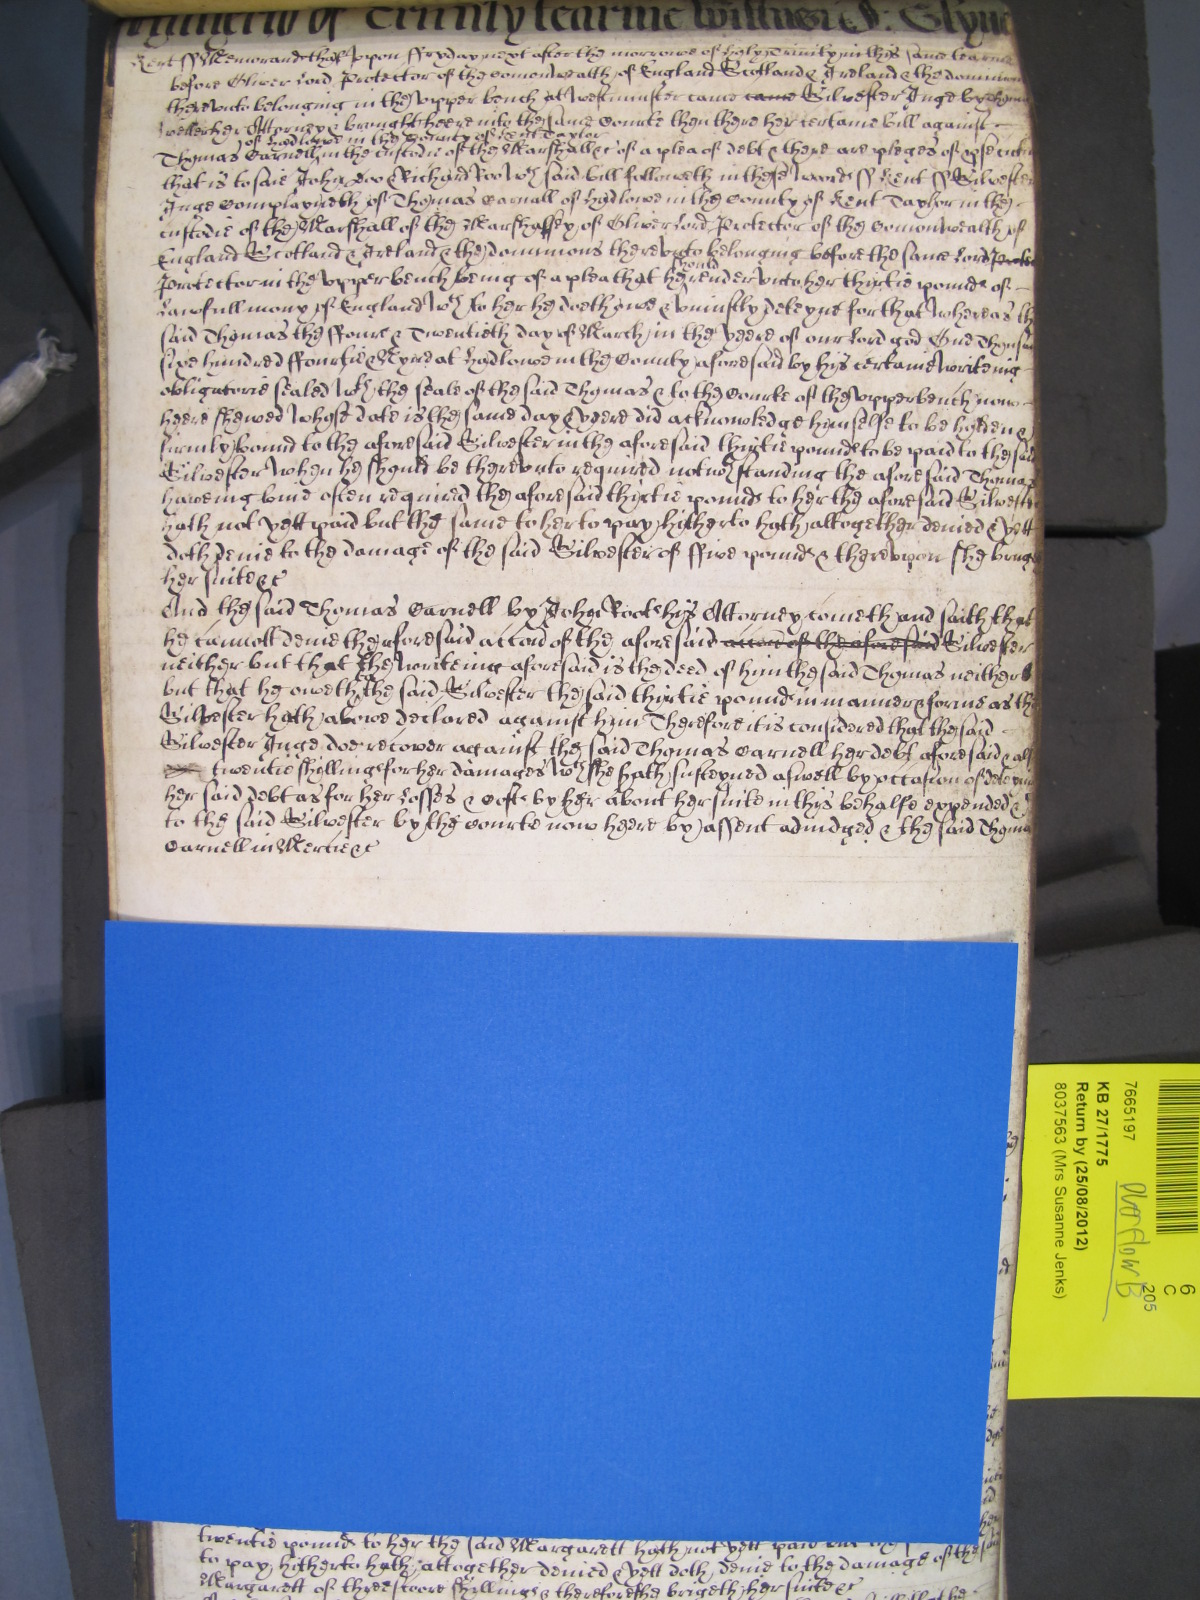 of Trinity tearme Wittnes J: Glyn
Kent ss Memorand that upon ffryday next after the morrowe of holy Trinity in this same tearme
before Oliver Lord Protector of the Comonwealth of England Scotland & Ireland & the dominions
thereunto belonging in the upper bench at Westminster came came Silvester Inge by Thomas
Weller her Attorney & brought heere into the same Courte then there her certaine bill against
of Hadlowe in the County of Kent Taylor
Thomas Carnell in the Custodie of the Marshall &c of a plea of debt & there are pleges of
that is to saie John Doo & Richard Roo Wch said bill followeth in these words ss Kent ss Silvester
Inge Complayneth of Thomas Carnall of Hadlowe in the County of Kent Taylor in the
custodie of the Marshall of the Marshalsey of Oliver Lord Protector of the Comonwealth of
England Scotland & Ireland & the dominions thereunto belonging before the same Lord
should
Protector in the upper bench being of a plea that he render unto her thirtie pounds of
Lawfull mony of England Wch to her he doeth owe & uniustly deteyne for that Whereas the
said Thomas the ffoure & Twentieth day of March in the yeere of our Lord god One Thousand
sixe hundred ffourtie & Nyne at Hadlowe in the County aforesaid by his certaine writeing
obligatorie sealed Wth the seale of the said Thomas & to the Courte of the upper bench now
heere shewed whose date is the same day & yeere did acknowledge himselfe to be holden &
firmly bound to the aforesaid Silvester in the aforesaid thirtie pounds to be paid to the said
Silvester when he should be thereunto required notwthstanding the aforesaid Thomas
haveing bin often required the aforesaid thirtie pounds to her the aforesaid Silvester
hath not yett paid but the same to her to pay hitherto hath altogether denied & yett
doth denie to the damage of the said Silvester of ffive pounds & thereupon she brings
her suite &c
And the said Thomas Carnell by John Roote his Attorney cometh and saith that
he cannott denie the aforesaid accord of the aforesaid accord of the aforesaid Silvester
neither but that the writeing aforesaid is the deed of him the said Thomas neither
but that he oweth to the said Silvester the said thirtie pounds in manner & forme as the
Silvester hath above declared against him Therefore it is considered that the said
Silvester Inge doe recover against the said Thomas Carnell her debt aforesaid &
twentie shillings for her damages Wch she hath susteyned aswell by occation of
her said debt as for her Losses & Costs by her about her suite in this behalfe expended &
to the said Silvester by the Courte now heere by assent adiudged & the said Thomas
Carnell in Mercie &c
twentie pounds to her the said Margarett hath not yett paid but the
to pay hitherto hath altogether denied & yett doth denie to the damage of the said
Margarett of three score shillings & therefore she bringeth her suite &c
7665197
KB 27/1775
Return by (25/08/2012)
8037563 (Mrs Susanne Jenks)
Overflow B
205
6
C